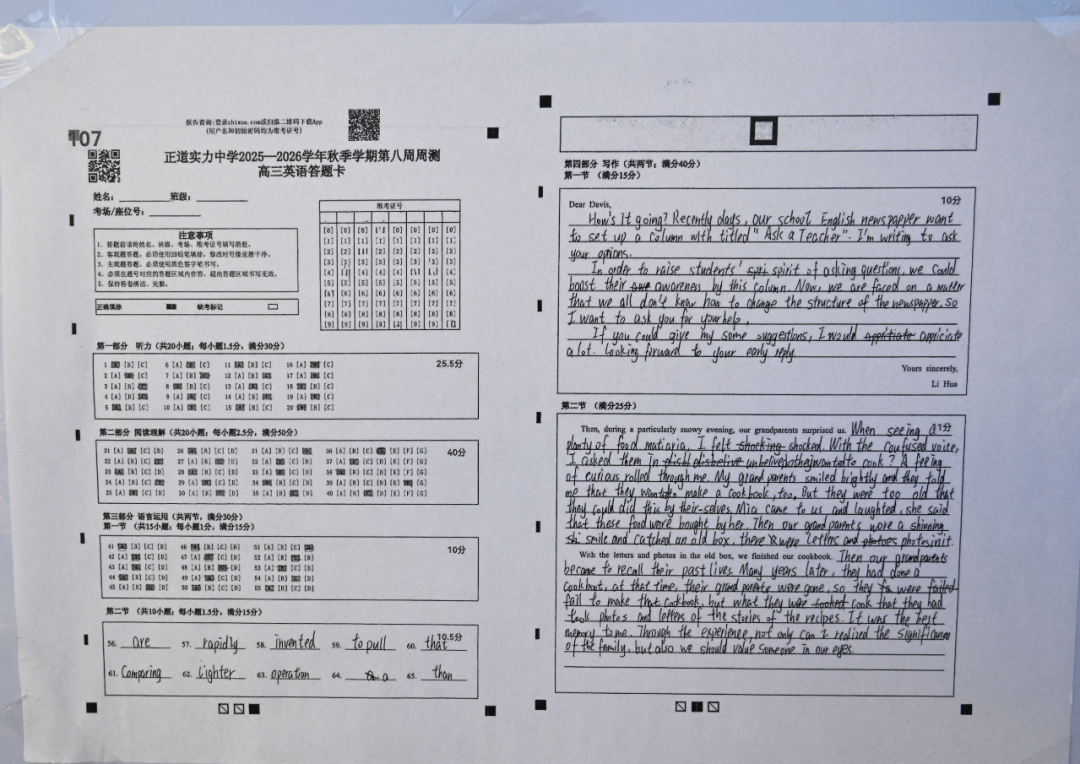 107
报告查询:登录zhixue.com或扫描二维码下载App
(用户名和初始密码均为准考证号)
正道实力中学2025—2026学年秋季学期第八周周测
高三英语答题卡
姓名: 班级:
考场/座位号:
准考证号
注意事项
1. 答题前请将姓名、班级、考场、准考证号填写清楚。
2. 客观题答题,必须使用2B铅笔填涂,修改时用橡皮擦干净。
3. 主观题答题,必须使用黑色签字笔书写。
4. 必须在题号对应的答题区域内作答,超出答题区域书写无效。
5. 保持答卷清洁、完整。
正确填涂 缺考标记
第一部分 听力(共20小题;每小题1.5分,满分30分)
25.5分
第二部分 阅读理解(共20小题;每小题2.5分,满分50分)
40分
第三部分 语言运用(共两节,满分30分)
第一节 (共15小题;每小题1分,满分15分)
10分
第二节 (共10小题;每小题1.5分,满分15分)
10.5分
56. are 57. rapidly 58. invented 59. to pull 60. that
61. Comparing 62. Lighter 63. operation 64. a 65. than
第四部分 写作(共两节;满分40分)
第一节 (满分15分)
10分
Dear Davis,
How's it going? Recently days, our school English newspapper want
to set up a column with titled "Ask a Teacher". I'm writing to ask
your options.
In order to raise students' spirit of asking questions, we could
boost their awareness by this column. Now, we are faced on a matter
that we all don't know how to change the structure of the newspapper. So
I want to ask you for your help.
If you could give my some suggestions, I would appriciate
a lot. Looking forward to your early reply.
Yours sincerely,
Li Hua
第二节 (满分25分)
Then, during a particularly snowy evening, our grandparents surprised us. When seeing a
plenty of food matiaria, I felt shocked. With the confused voice,
I asked them to cook? A feeling
of curious rolled through me. My grandparents smiled brightly and they told
me that they make a cookbook, too, but they were too old that
they could did this by their-selves. Mia came to us and laughted, she said
that these food were bought by her. Then our grandparents wore a shinning
smile and catched an old box, there were letters and photoes in it.
With the letters and photos in the old box, we finished our cookbook. Then our grandparents
became to recall their past lives. Many years later, they had done a
cookboot, at that time, their grand parents were gone, so they
fail to make that cookbook, but what they cook that they had
took photos and letters of the stories of the recipes. It was the best
memory to me. Through the experience, not only can I realized the significance
of the family, but also we should value someone in our eyes.